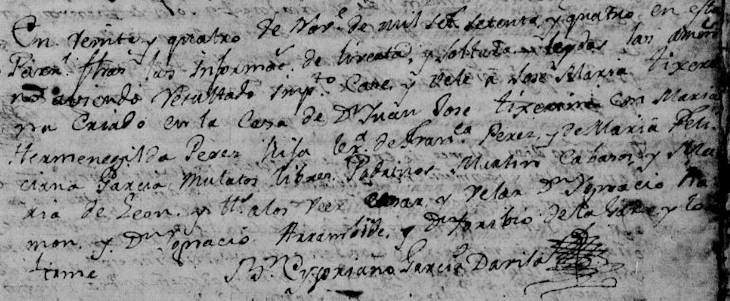 En veinte y quatro de Novᵉ de mil setᵗ setenta, y quatro en esta
Parrⁱ fhas las Informacˢ de livertad, y soltura y leydas las amones
no aviendo resultado Impᵗᵒ Case, y Vele a Jose Maria tixeri
na Criado en la Casa de Dⁿ Juan Jose tixerina Con Maria
Hermenegilda Perez hija lexᵃ de Franᶜᵃ Perez, y de Maria Feli
ciana Garcia Mulatos libres Padrinos Matias Cabazos y Ma
ria de Leon, y ttᵒˢ a los ver Casar, y Velar Dⁿ Ygnacio Ra
mon, y Dⁿ Ygnacio Arrambide, y Dⁿ toribio de la y lo
firme Bʳ Cypriano Garciᵃ Davila